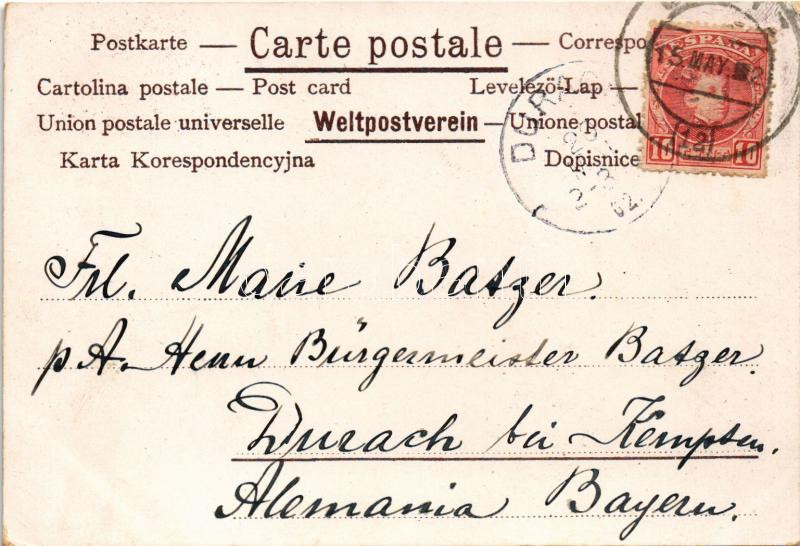 Postkarte — Carte postale — Correspo
Cartolina postale — Post card Levelező-Lap —
Union postale universelle Weltpostverein — Unione postal
Karta Korespondencyjna Dopisnice
ESPAÑA
15 MAY
10 10
DURAC
02
Frl. Marie Batzer.
p A. Herrn Bürgermeister Batzer.
Durach bei Kempten.
Alemania Bayern.